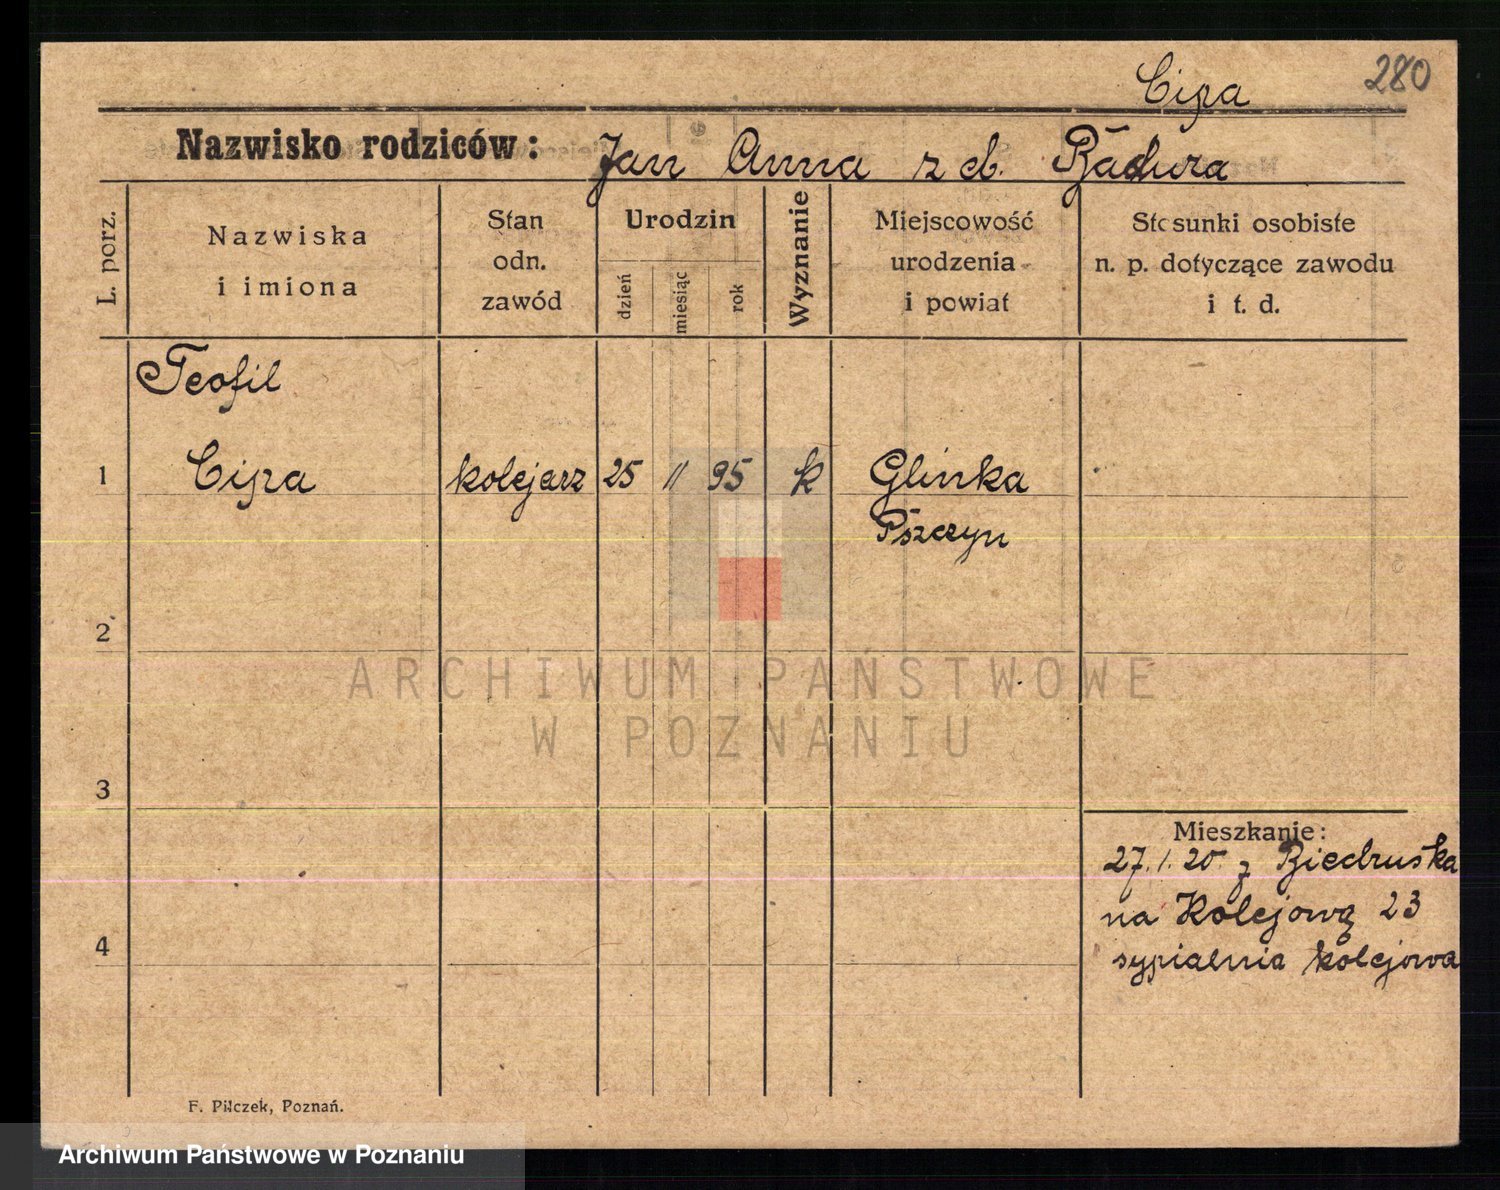 Cipa
280
Nazwisko rodziców: Jan Anna z d. Badura
L. porz.
Nazwiska
i imiona
Stan
odn.
zawód
Urodzin
dzień
miesiąc
rok
Wyznanie
Miejscowość
urodzenia
i powiat
Stosunki osobiste
n. p. dotyczące zawodu
i t. d.
Teofil
1 Cipa kolejarz 25 11 95 k Glinka
Pszczyn
2
ARCHIWUM PAŃSTWOWE
W POZNANIU
3
Mieszkanie:
27.1.20. z Biedruska
na Kolejową 23
4
sypialnia kolejowa
F. Pilczek, Poznań.
Archiwum Państwowe w Poznaniu